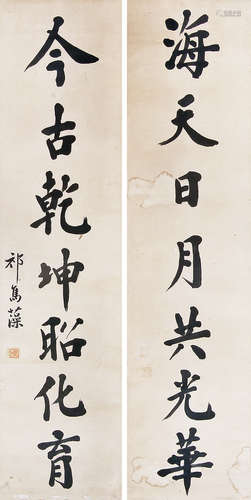 海天日月共光華
今古乾坤昭化育
祁寯藻